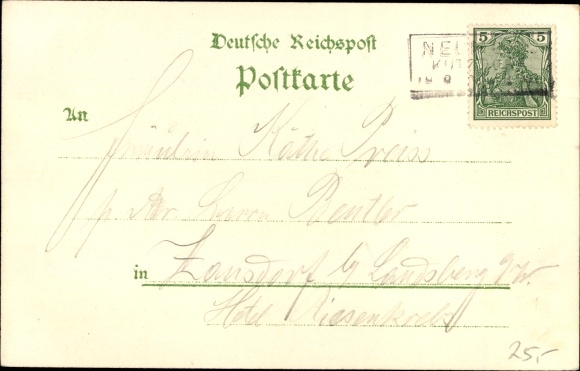 Deutsche Reichspost
Postkarte
NEU
KÜTZ
5 5
REICHSPOST
An
Fräulein Käthe Preiss
p. Adr. Herrn Beutler
in Zansdorf b/ Landsberg a/W.
Hotel Riesenkrebs
25,-